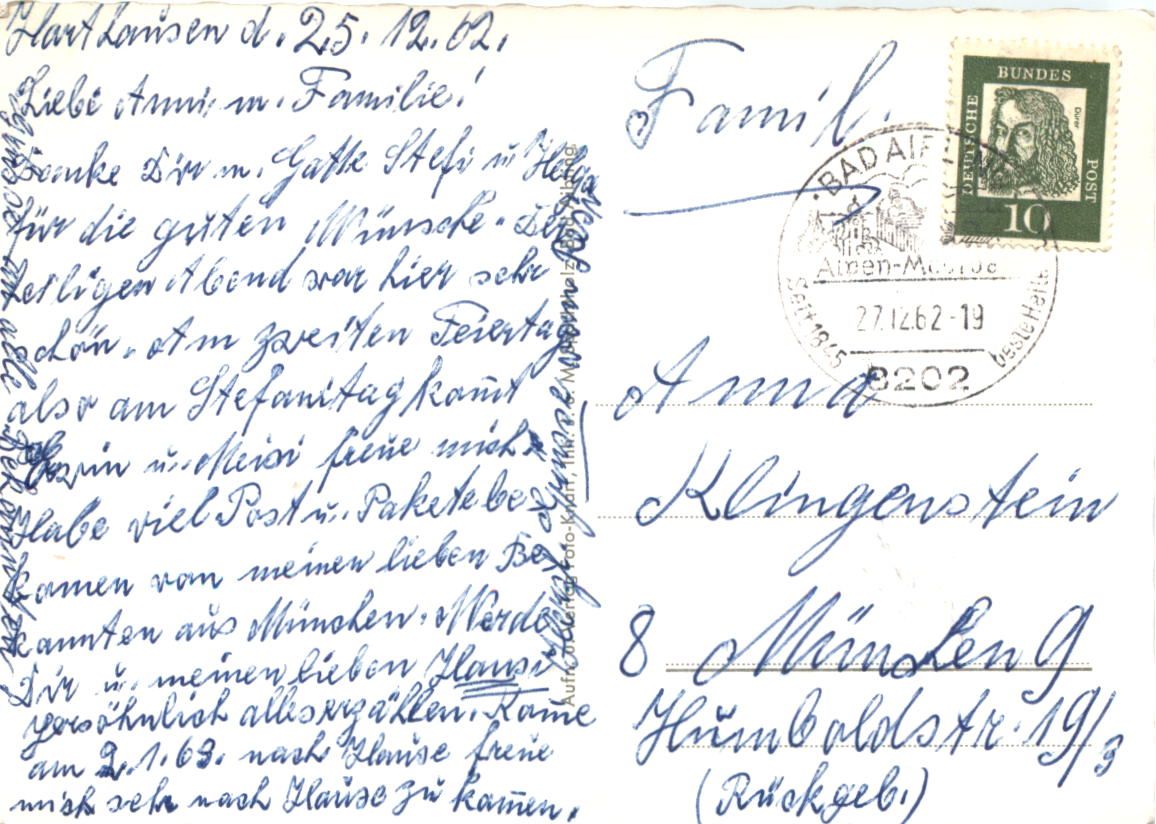 Harthausen d. 25. 12. 62.
Liebe Anni m. Familie!
Danke Dir m. Gatte Stefi u Helga
für die guten Wünsche. Der
heiligen Abend war hier sehr
schön. Am zweiten Feiertag
also am Stefanitag kom̄t
Erwin u. Meisi freue mich.
Habe viel Post u. Pakete be
komen von meinen lieben Be
kannten aus München. Werde
Dir u. meinen lieben Hansi
persöhnlich alles erzählen. Kome
am 2.1.63. nach Hause freue
mich sehr nach Hause zu kom̄en.
alle Bekannten
BUNDES
DEUTSCHE
POST
Dürer
10
BAD AIB
Seit 1845
27.12.62-19
8202
Famil.
Anna
Klingenstein
8 München 9
Humboldstr. 19/3
(Rückgeb.)